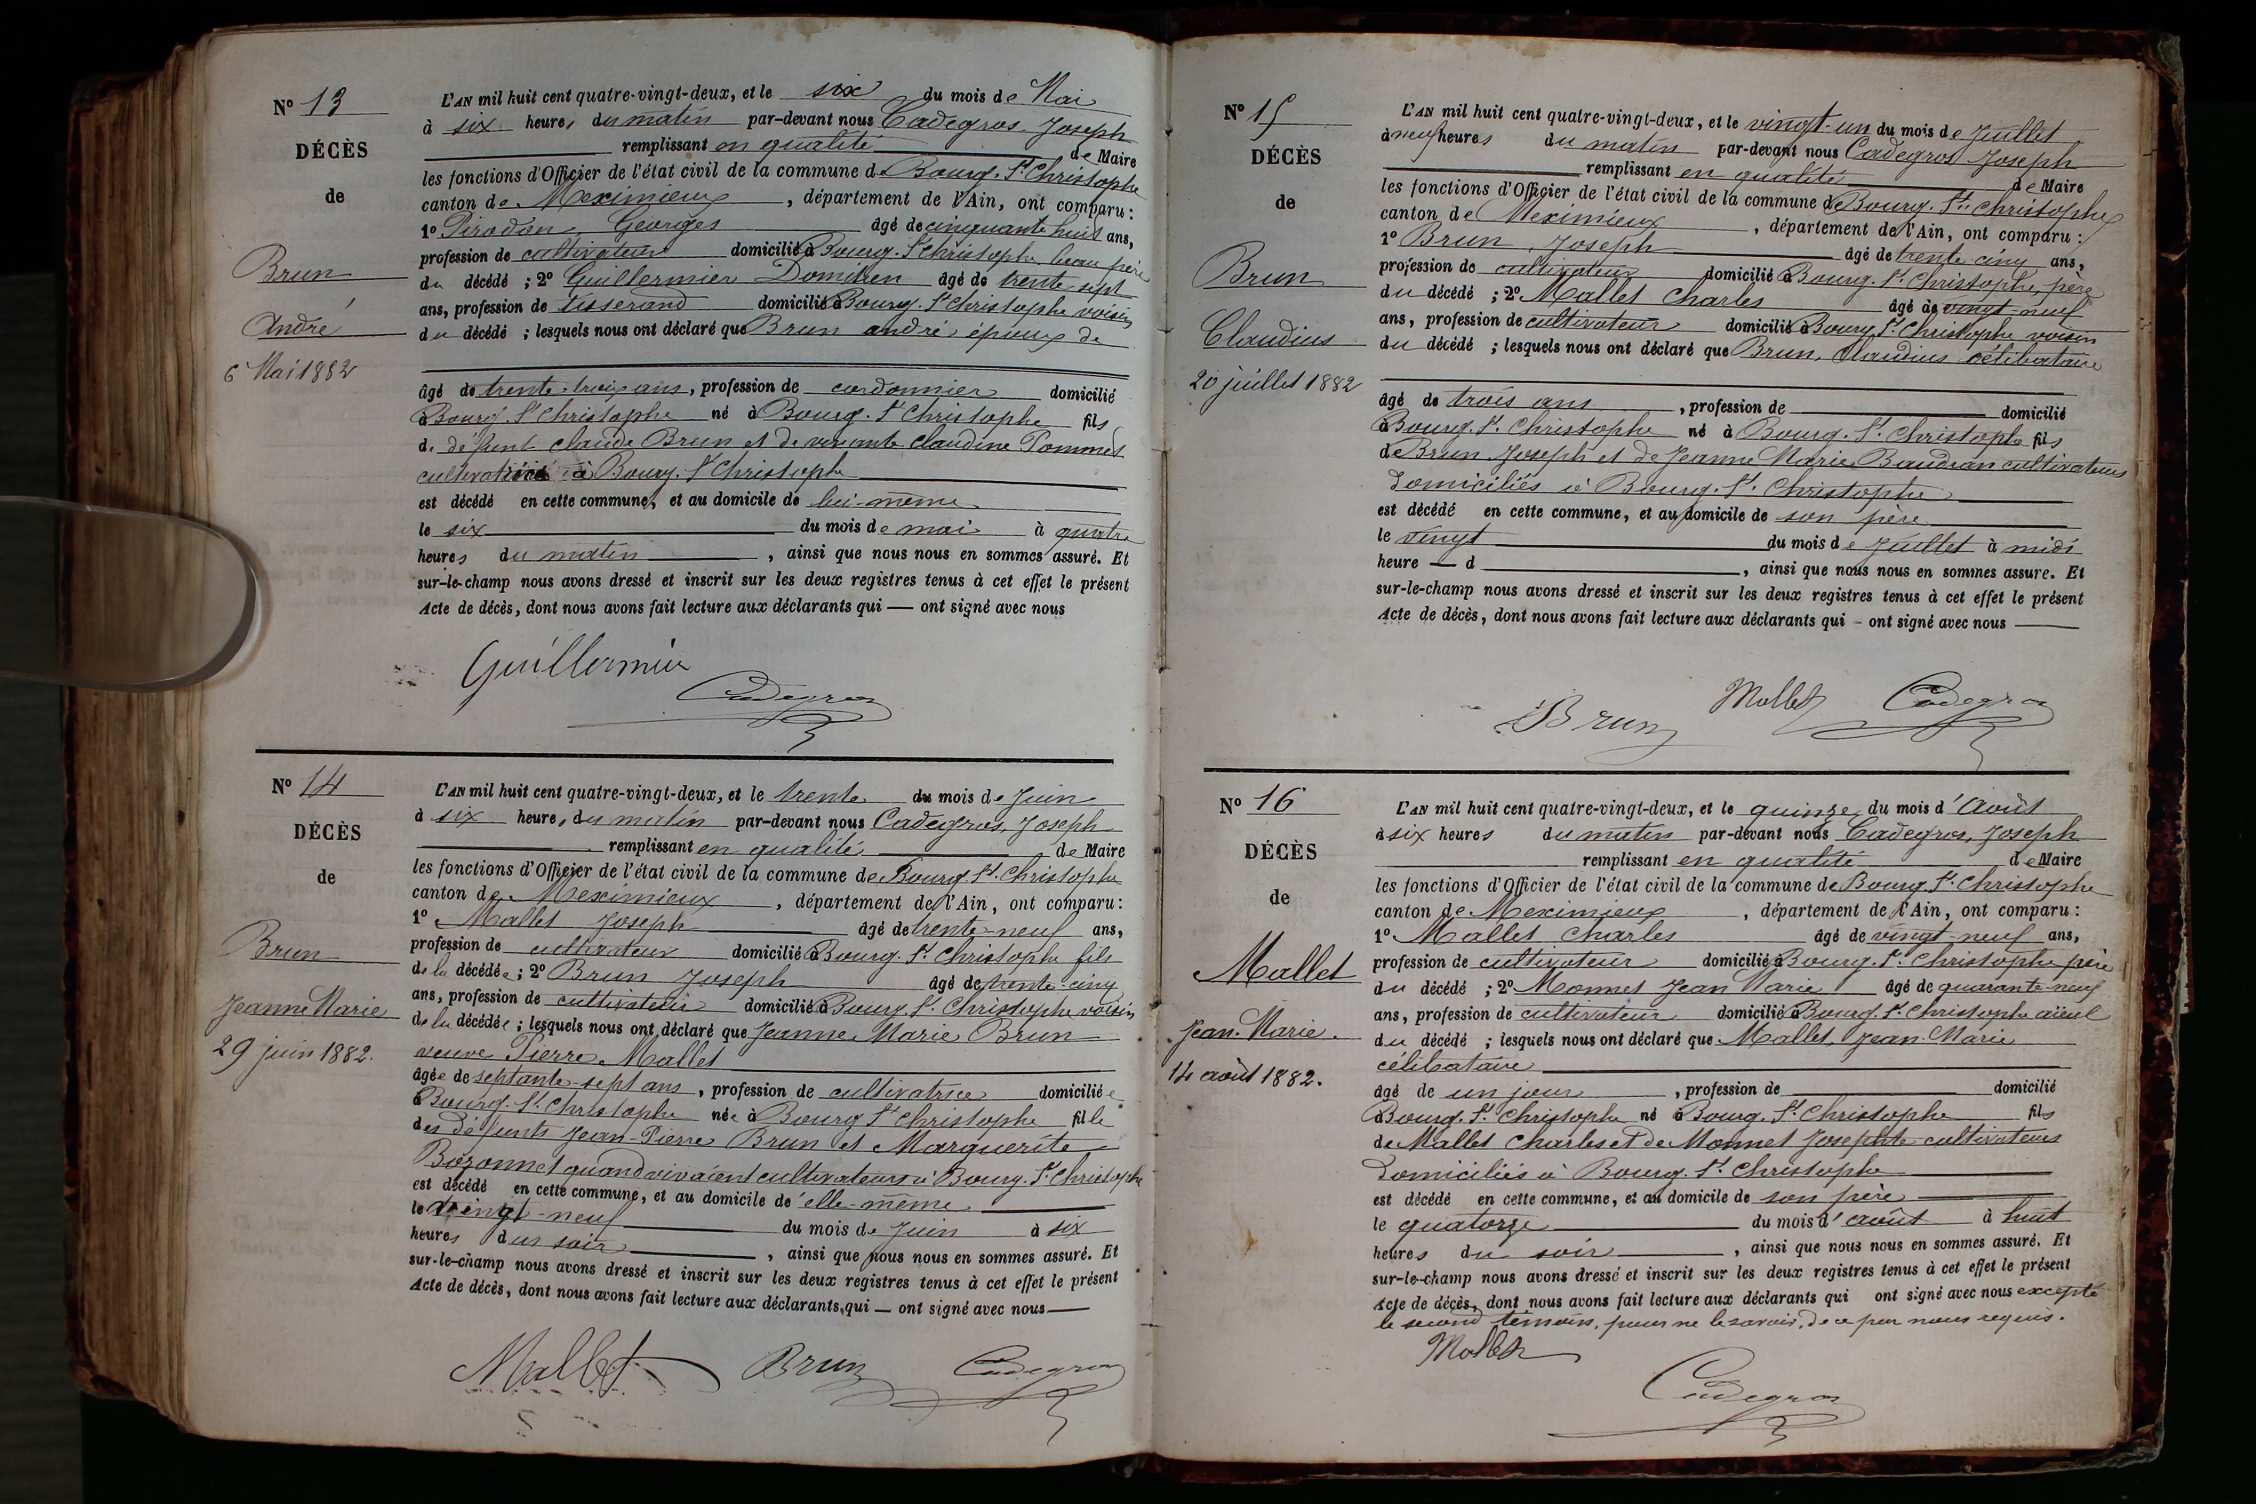 N° 13
DÉCÈS
de
Brun
André
6 Mai 1882
L'AN mil huit cent quatre-vingt-deux, et le six du mois de Mai
à six heures du matin par-devant nous Cadegros, Joseph
remplissant en qualité de Maire
les fonctions d'Officier de l'état civil de la commune de Bourg. St Christophe
canton de Meximieux, département de l'Ain, ont comparu :
1° Pirodon Georges âgé de cinquante huit ans,
profession de cultivateur domicilié à Bourg. St Christophe beau père
du décédé ; 2° Guillermier Domitien âgé de trente-sept
ans, profession de tisserand domicilié à Bourg. St Christophe voisin
du décédé ; lesquels nous ont déclaré que Brun andré époux de
âgé de trente-trois ans, profession de cordonnier domicilié
à Bourg. St Christophe né à Bourg. St Christophe fils
de défunt claude Brun et de vivante claudine Pommet
cultivatrice à Bourg. St Christophe
est décédé en cette commune, et au domicile de lui-même
le six du mois de mai à quatre
heures du matin, ainsi que nous nous en sommes assuré. Et
sur-le-champ nous avons dressé et inscrit sur les deux registres tenus à cet effet le présent
Acte de décès, dont nous avons fait lecture aux déclarants qui — ont signé avec nous
Guillermier
Cadegros
N° 14
DÉCÈS
de
Brun
Jeanne Marie
29 juin 1882.
L'AN mil huit cent quatre-vingt-deux, et le trente du mois de Juin
à six heures du matin par-devant nous Cadegros, Joseph
remplissant en qualité de Maire
les fonctions d'Officier de l'état civil de la commune de Bourg St. Christophe
canton de Meximieux, département de l'Ain, ont comparu :
1° Mallet Joseph âgé de trente-neuf ans,
profession de cultivateur domicilié à Bourg. St Christophe fils
de la décédée ; 2° Brun Joseph âgé de trente-cinq
ans, profession de cultivateur domicilié à Bourg. St. Christophe voisin
de la décédée ; lesquels nous ont déclaré que Jeanne Marie Brun
veuve Pierre Mallet
âgée de septante-sept ans, profession de cultivatrice domiciliée
à Bourg. St. Christophe née à Bourg St Christophe fille
des défunts Jean-Pierre Brun et Marguerite
Bozonnet quand vivaient cultivateurs à Bourg. St Christophe
est décédé en cette commune, et au domicile de elle-même
le vingt-neuf du mois de Juin à six
heures du soir, ainsi que nous nous en sommes assuré. Et
sur-le-champ nous avons dressé et inscrit sur les deux registres tenus à cet effet le présent
Acte de décès, dont nous avons fait lecture aux déclarants, qui — ont signé avec nous
Mallet Brun Cadegros
N° 15
DÉCÈS
de
Brun
Claudius
20 juillet 1882
L'AN mil huit cent quatre-vingt-deux, et le vingt-un du mois de Juillet
à neuf heures du matin par-devant nous Cadegros Joseph
remplissant en qualité de Maire
les fonctions d'Officier de l'état civil de la commune de Bourg. St. christophe
canton de Meximieux, département de l'Ain, ont comparu :
1° Brun, Joseph âgé de trente cinq ans,
profession de cultivateur domicilié à Bourg. St. Christophe, père
du décédé ; 2° Mallet Charles âgé de vingt-neuf
ans, profession de cultivateur domicilié à Bourg. St. Christophe voisin
du décédé ; lesquels nous ont déclaré que Brun, Claudius célibataire
âgé de trois ans, profession de domicilié
à Bourg. St. Christophe né à Bourg. St. Christophe fils
de Brun Joseph et de Jeanne Marie Baudran cultivateurs
Domiciliés à Bourg. St. Christophe
est décédé en cette commune, et au domicile de son père
le vingt du mois de Juillet à midi
heure — d, ainsi que nous nous en sommes assuré. Et
sur-le-champ nous avons dressé et inscrit sur les deux registres tenus à cet effet le présent
Acte de décès, dont nous avons fait lecture aux déclarants qui — ont signé avec nous
Brun Mallet Cadegros
N° 16
DÉCÈS
de
Mallet
Jean-Marie.
14 août 1882.
L'AN mil huit cent quatre-vingt-deux, et le quinze du mois d'Août
à six heures du matin par-devant nous Cadegros, Joseph
remplissant en qualité de Maire
les fonctions d'Officier de l'état civil de la commune de Bourg St. Christophe
canton de Meximieux, département de l'Ain, ont comparu :
1° Mallet Charles âgé de vingt-neuf ans,
profession de cultivateur domicilié à Bourg. St. Christophe père
du décédé ; 2° Monnet Jean Marie âgé de quarante-neuf
ans, profession de cultivateur domicilié à Bourg. St. Christophe aïeul
du décédé ; lesquels nous ont déclaré que Mallet, Jean-Marie
célibataire
âgé de un jour, profession de domicilié
à Bourg. St. Christophe né à Bourg. St. Christophe fils
de Mallet Charles et de Monnet Josephte cultivateurs
Domiciliés à Bourg. St. Christophe
est décédé en cette commune, et au domicile de son père
le quatorze du mois d'août à huit
heures du soir, ainsi que nous nous en sommes assuré. Et
sur-le-champ nous avons dressé et inscrit sur les deux registres tenus à cet effet le présent
Acte de décès, dont nous avons fait lecture aux déclarants qui ont signé avec nous excepté
le second témoin, pour ne le savoir, de ce par nous requis.
Mallet
Cadegros